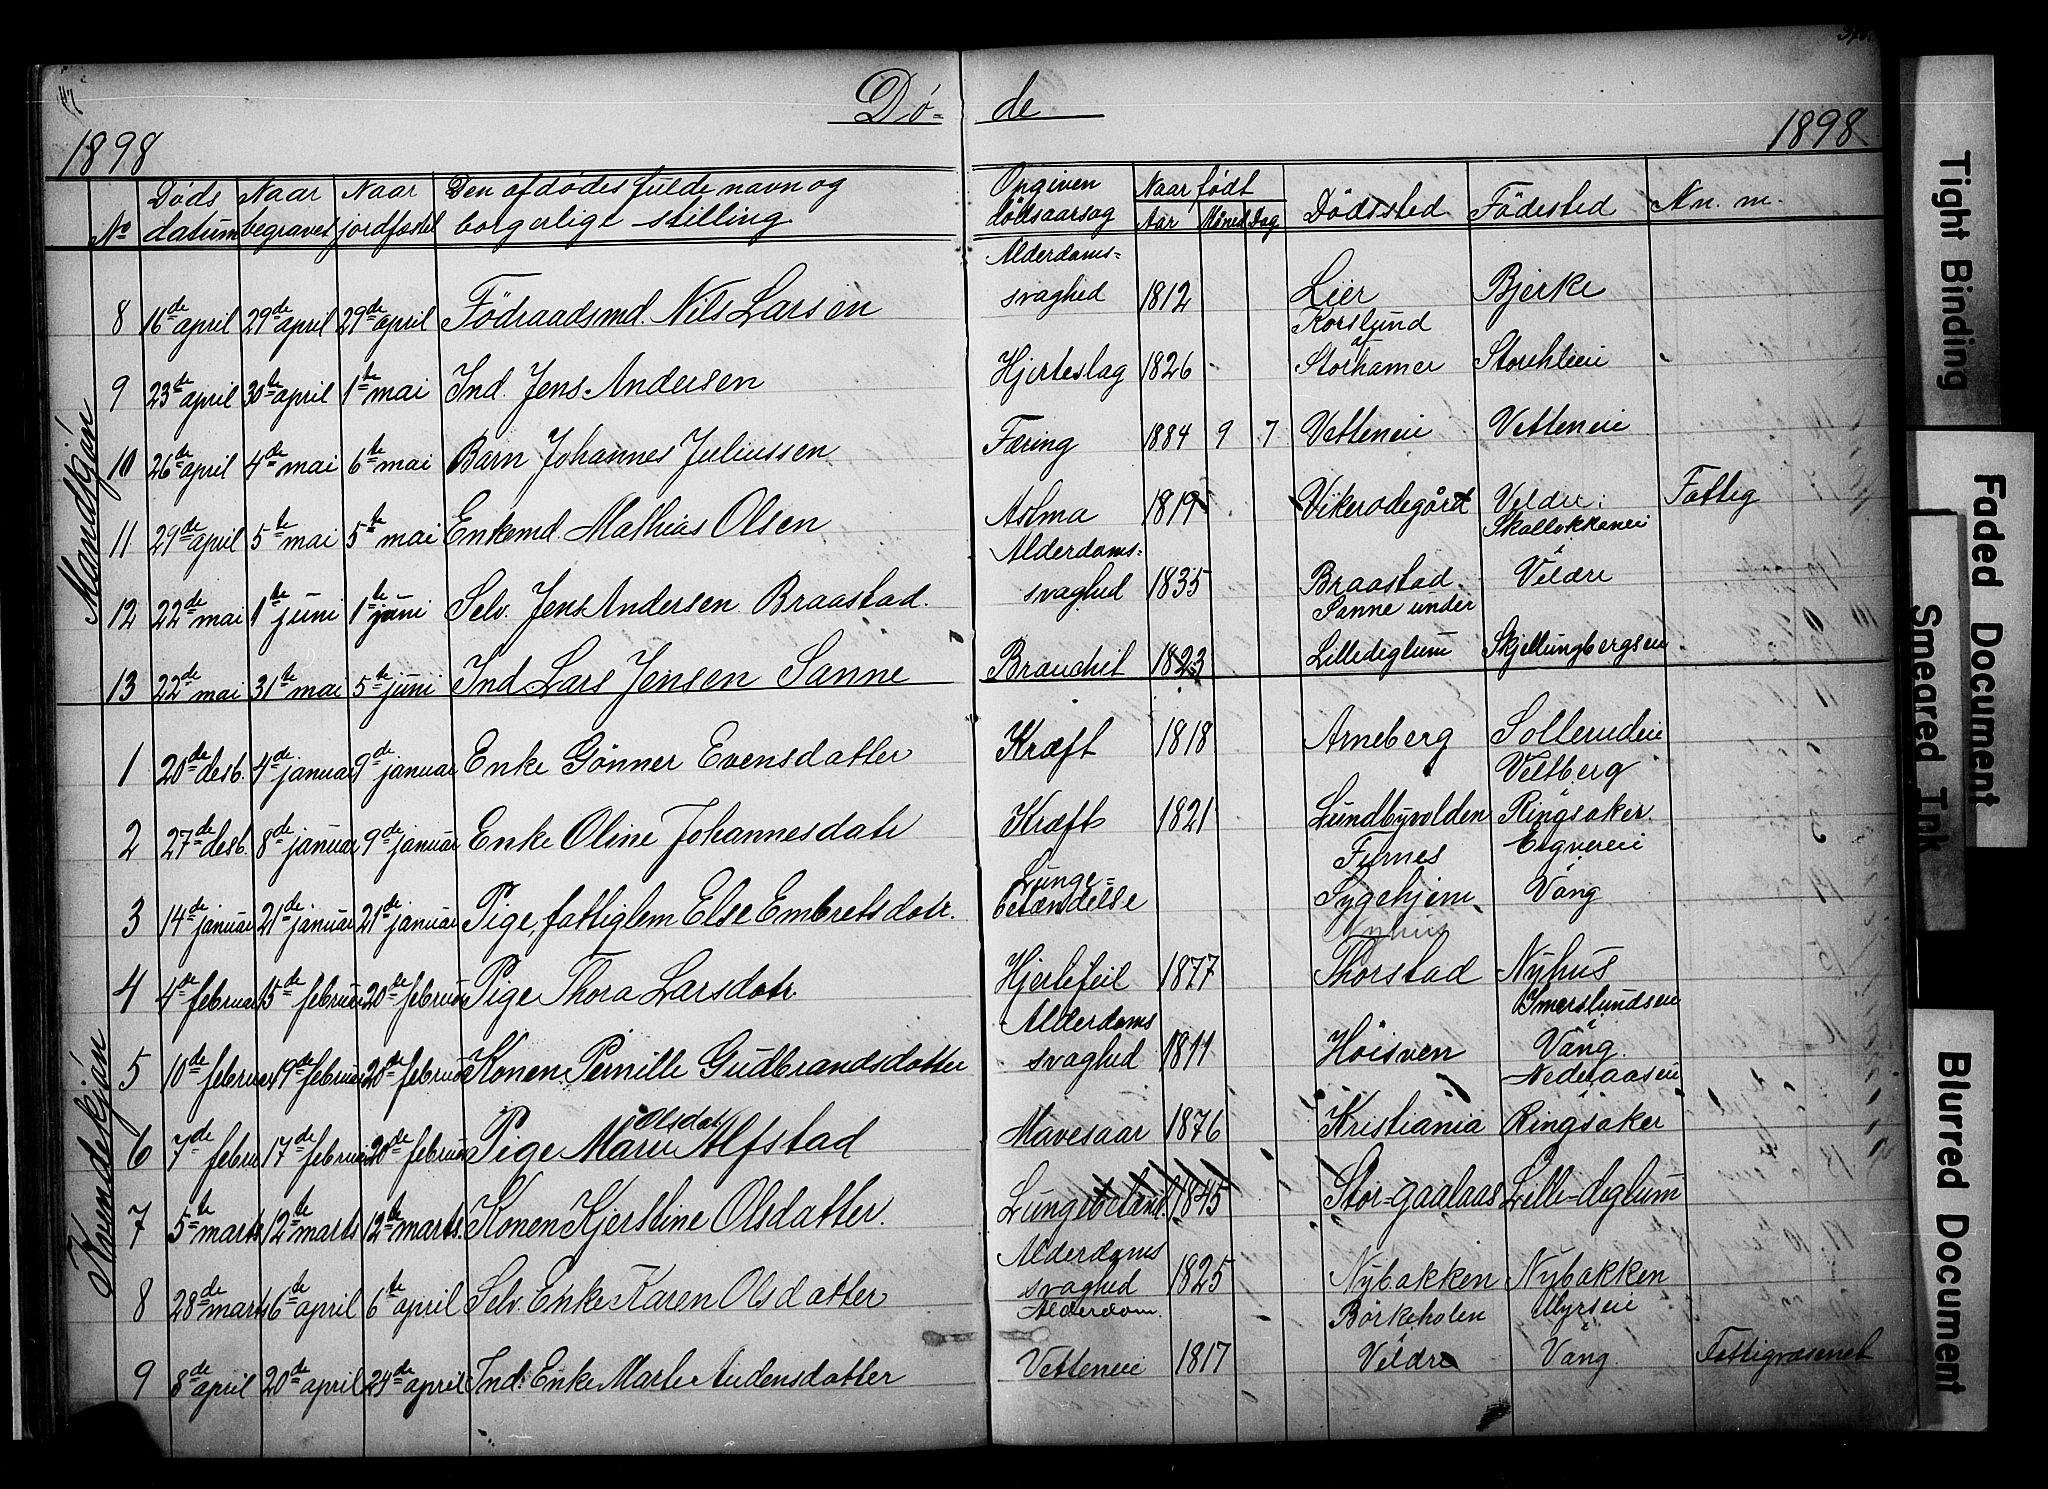 Dø- de
1898 1898
No Døds datum Naar begravet Naar jordfæstet Den afdødes fulde navn og borgerlige stilling Opgiven dødsaarsag Naar født Aar Måned Dag Dödssted Födested An. m.
Mandkjøn
8 16de april 29de april 29de april Födraadsmd. Nils Larsen Alderdoms- svaghed 1812 Lier Bjerke
9 23de april 30te april 1te mai Ind. Jens Andersen Hjerteslag 1826 Korslund af Storhamer Storihleie
10 26de april 4de mai 6te mai Barn Johannes Juliussen Færing 1884 9 7 Vetteneie Vetteneie
11 29de april 5te mai 5te mai Enkemd. Mathias Olsen Astma 1819 Vikerødegård Veldre: Skallokkeneie Fattig
12 22de mai 1te juni 1te juni Selv. Jens Andersen Braastad. Alderdoms- svaghed 1835 Braastad Veldre
13 22de mai 31te mai 5te juni Ind Lars Jensen Sanne 1823 Sanne under Lilledeglum Skjellungbergseie
Kvindekjøn
1 20de desb. 4de januar 9de januar Enke Gønner Evensdatter Kræft 1818 Arneberg Sollerudeie
2 27de desb. 8de januar 9de januar Enke Oline Johannesdatr Kræft 1821 Lundbyvolden Veltberg Ringsaker
3 14de januar 21de januar 21de januar Pige, fattiglem Else Embretsdatr. Lunge- betændelse Furnes Sygehjem Ergvereie Vang
4 4de februar 15de februar 20de februar Pige Thora Larsdatr. Hjertefeil 1877 Thorstad Nyhus
5 10de februar 19de februar 20de februar Konen Pernille Gudbrandsdatter Alderdoms svaghed 1811 Höisven Imerslundseie Vang
6 7de febru 17de februar 20de februar Pige Marie Olsdat Alfstad Mavesaar 1876 Kristiania Nederaaseie Ringsaker
7 5te marts 12te marts 12te marts. Konen Kjerstine Olsdatter. Lungebetænd. 1845 Stor-gaalaas Lille-deglum
8 28de marts 6te april 6te april Selv. Enke Karen Olsdatter Alderdoms svaghed 1825 Nybakken Nybakken
9 8de april 20de april 24de april Ind. Enke Marte Audensdatter Alderdom. Vetteneie 1817 Börkeholen Veldre Myrseie Vang. Fattigvæsenet
Tight Binding
Faded Document
Smeared Ink
Blurred Document